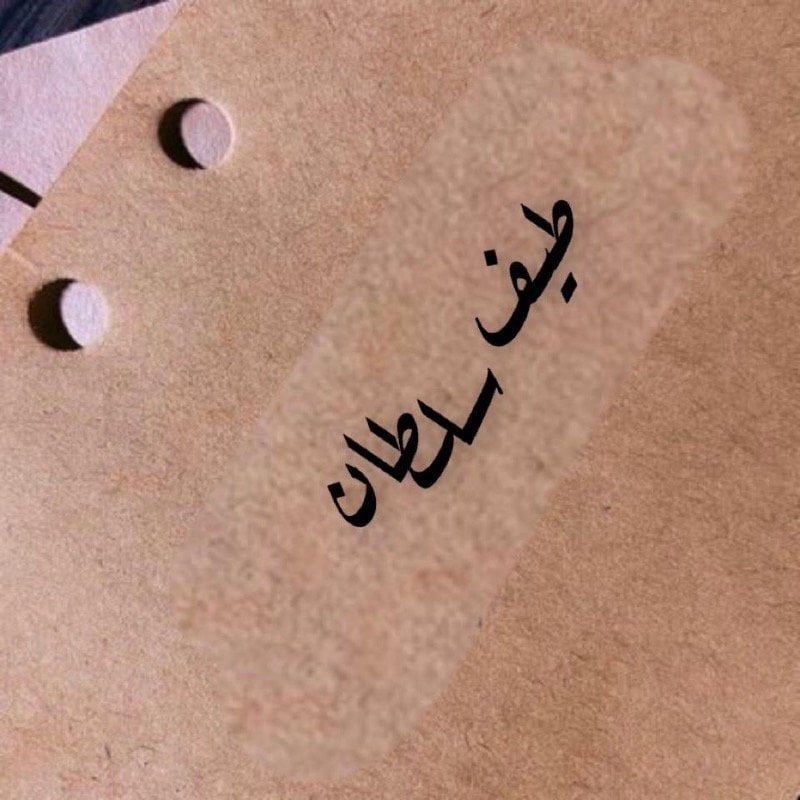 طيف سلطان